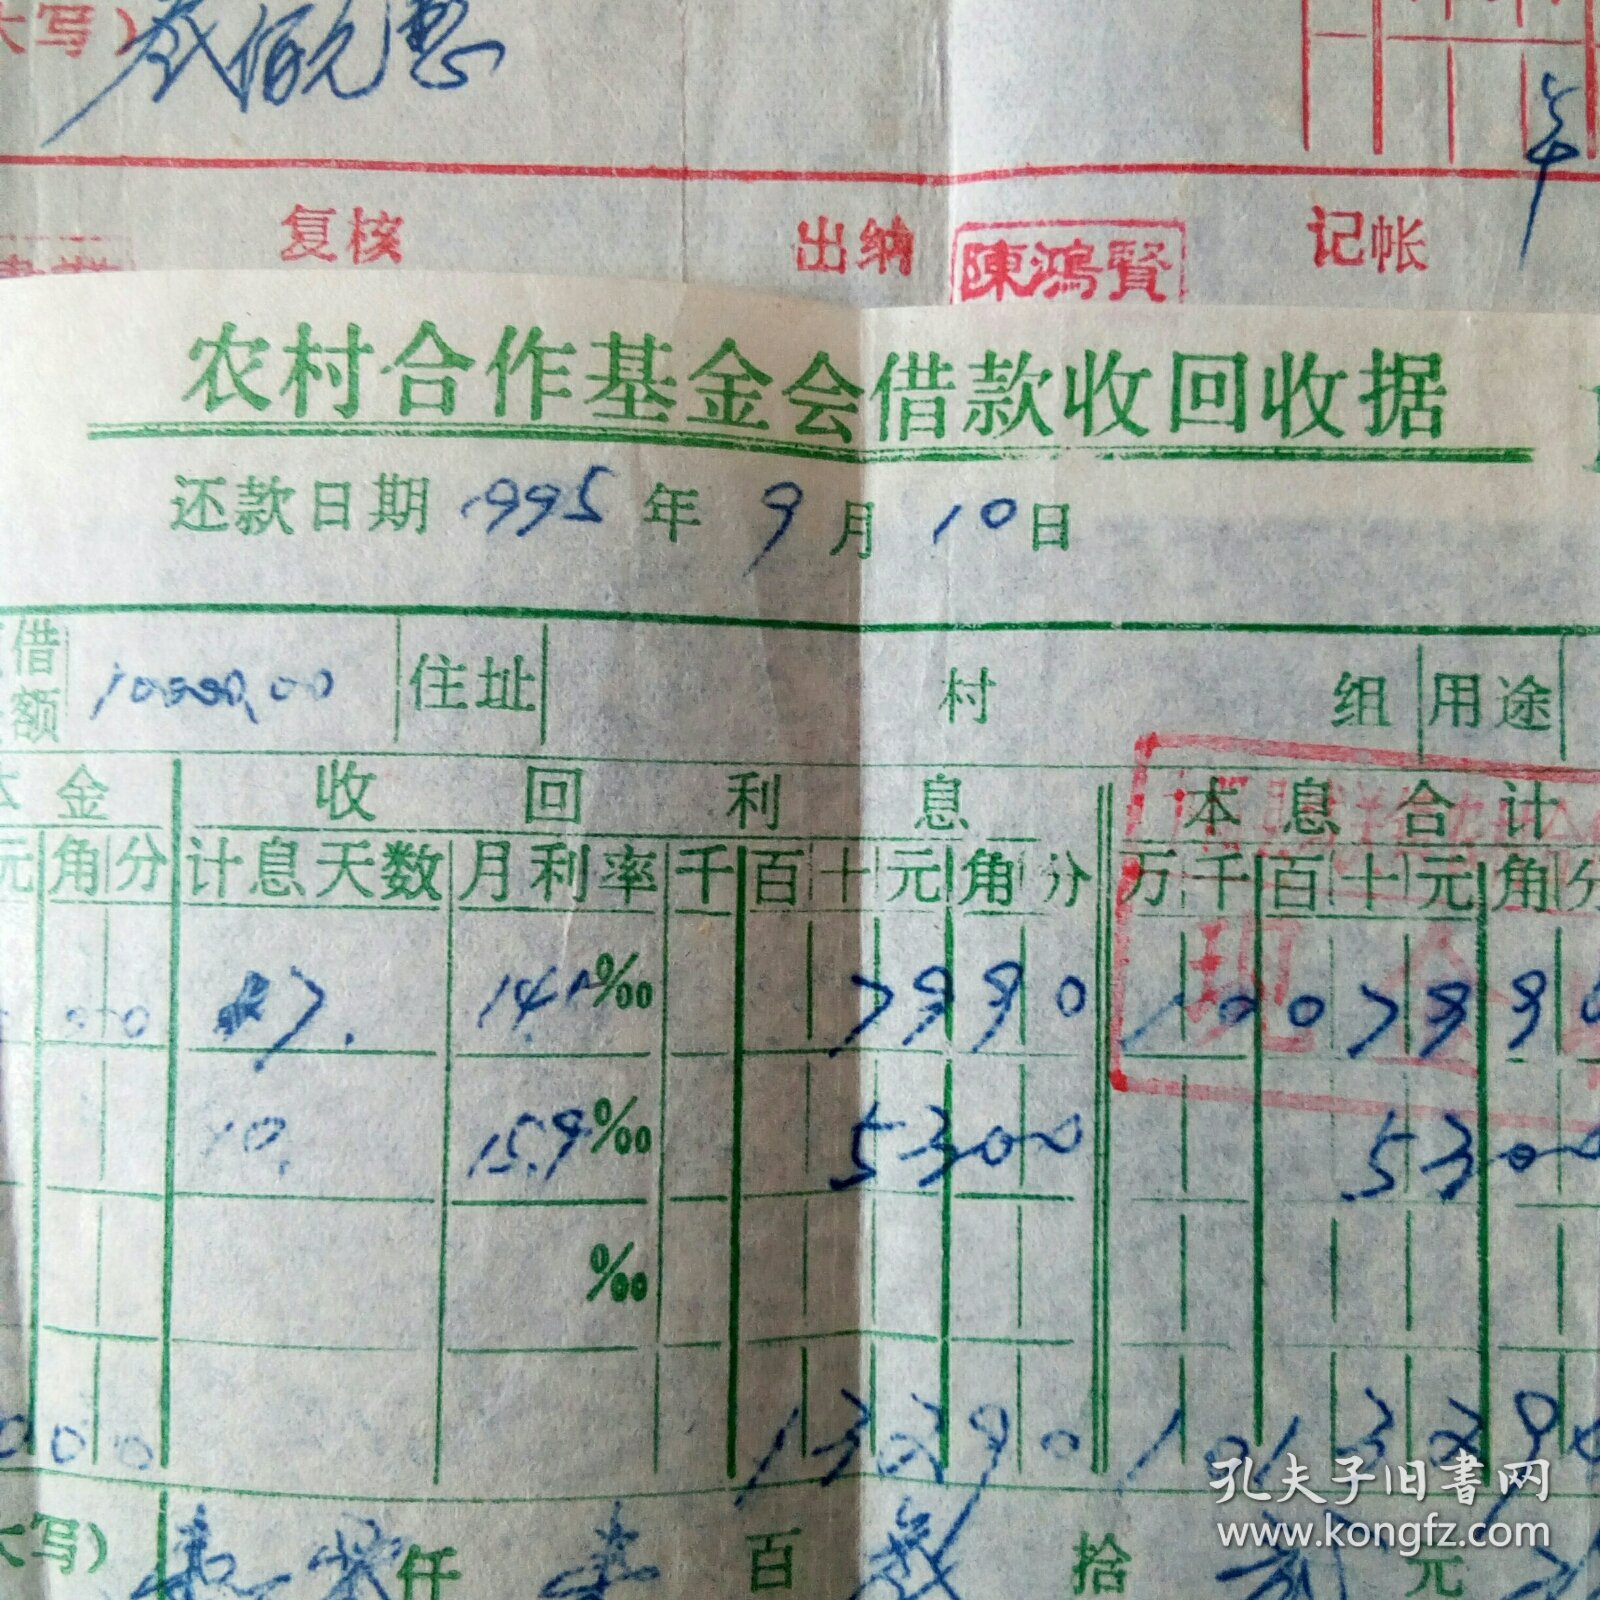 大写)
复核 出纳 陳鴻賢 记帐
农村合作基金会借款收回收据
还款日期 1995 年 9 月 10 日
借 额 10000.00 住址 村 组 用途
本金 收回利息 本息合计
元 角 分 计息天数 月利率 千 百 十 元 角 分 万 千 百 十 元 角 分
00 7. ‰ 7 9 9 0 1 0 0 7 9 9
现金
10. 15.9‰ 5 3 0 0 5 3 0 0
‰
0 0 0 1 3 2 9 0 1 0 1 3 2 9
大写) 仟 百 拾 元
孔夫子旧书网
www.kongfz.com